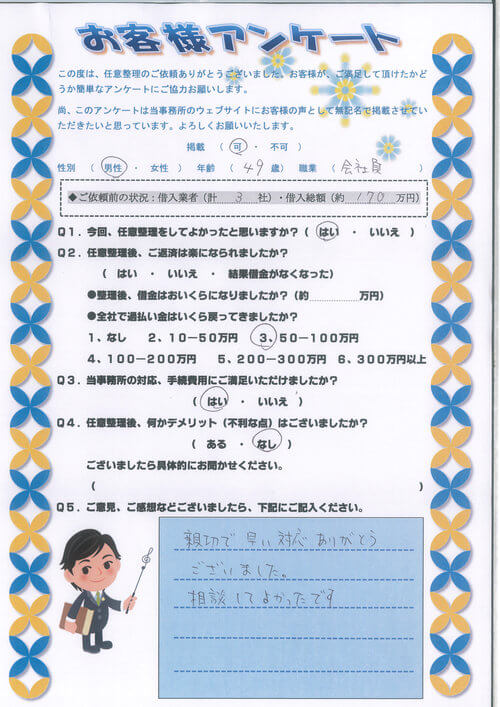 お客様アンケート
この度は、任意整理のご依頼ありがとうございました。お客様が、ご満足して頂けたかど
うか簡単なアンケートにご協力お願いします。
尚、このアンケートは当事務所のウェブサイトにお客様の声として無記名で掲載させてい
ただきたいと思っています。よろしくお願いいたします。
掲載 ( 可 ・ 不可 )
性別 ( 男性 ・ 女性 ) 年齢 ( 49 歳) 職業 ( 会社員 )
◆ご依頼前の状況:借入業者(計 3 社)・借入総額(約 170 万円)
Q1.今回、任意整理をしてよかったと思いますか?( はい ・ いいえ )
Q2.任意整理後、ご返済は楽になられましたか?
( はい ・ いいえ ・ 結果借金がなくなった)
●整理後、借金はおいくらになりましたか?(約............万円)
●全社で過払い金はいくら戻ってきましたか?
1、なし 2、10-50万円 3、50-100万円
4、100-200万円 5、200-300万円 6、300万円以上
Q3.当事務所の対応、手続費用にご満足いただけましたか?
( はい ・ いいえ )
Q4.任意整理後、何かデメリット(不利な点)はございましたか?
( ある ・ なし )
ございましたら具体的にお聞かせください。
( )
Q5.ご意見、ご感想などございましたら、下記にご記入ください。
親切で早い対応ありがとう
ございました。
相談してよかったです